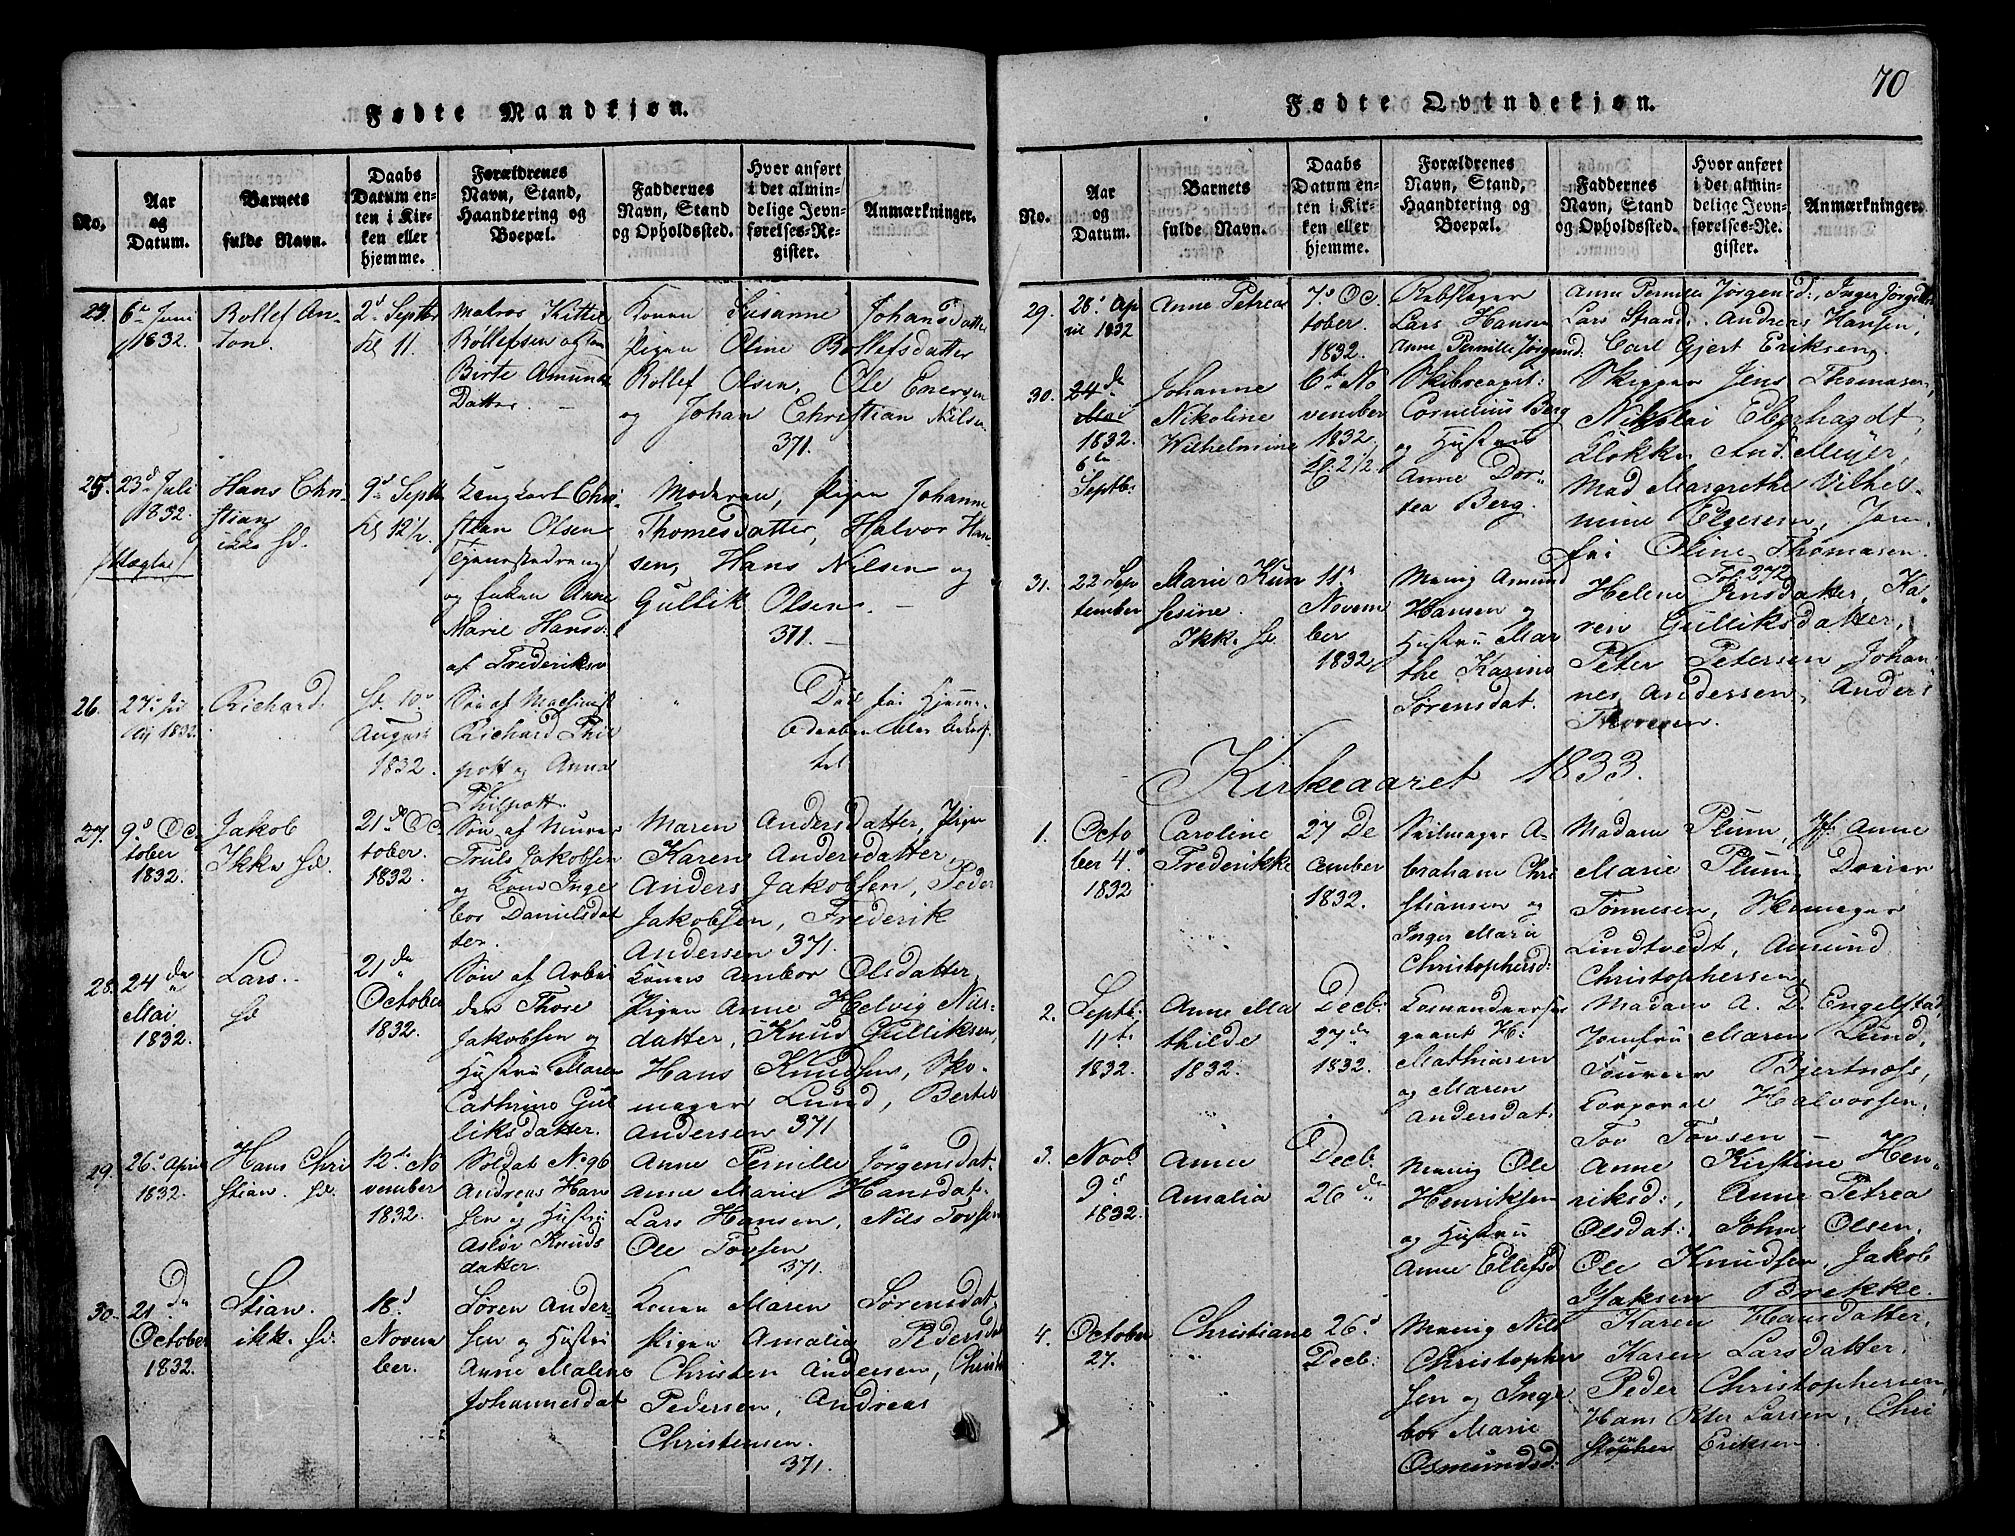 70
Fødte Mandkjøn.
No.
Aar
og
Datum.
Barnets
fulde Navn.
Daabs
Datum en-
ten i Kir-
ken eller
hjemme.
Forældrenes
Navn, Stand,
Haandtering og
Boepæl.
Faddernes
Navn, Stand
og Opholdssted.
Hvor anført
i det almin-
delige Jevn-
førelses-Re-
gister.
Anmærkninger.
6te Juni
1832.
Rollef An-
ton.
2d Septbr
Kl 11.
Matros Kittel
Rollefsen og
Birte Amunds
Datter.
Konen Susanne Johansdatter
Pigen Oline Rollefsdatter
Rollef Olsen, Ole Enersen
og Johan Christian Nilsen
371.
25.
23d Juli
1832.
Hans Chri-
stian
ikke hd.
9d Septbr
Kl 12½.
Christian Olsen
og Anne
Marie Hansd:
af Frederiksv
Moderen, Pigen Johanne
Thomesdatter, Halvor Han-
sen, Hans Nilsen og
Gullik Olsen.
371.
26.
1832.
Richard
10d
August
1832.
Søn af
Richard Phil
pott og Anna
Philpott
27.
9d Oc
tober
1832.
Jakob
Ikke hd.
21de Oc
tober.
1832.
Søn af Murer
Truls Jakobsen
og Kone Inge
bor Danielsdat
ter.
Maren Andersdatter, Pigen
Karen Andersdatter,
Anders Jakobsen, Peder
Jakobsen, Frederik
Andersen 371.
28.
24de
Mai
1832.
Lars.
hd
21de
October
1832.
Søn af Arbei
der Thore
Jakobsen og
Hustru Maren
Cathrine Gul
liksdatter.
Konen Arnbor Olsdatter,
Pigen Anne Helvig Niels-
datter, Knud Gulliksen,
Hans Knudsen, Sko-
mager Lund, Bertel
Andersen 371
29.
26d April
1832.
Hans Chri
stian. hd.
12te No
vember
1832.
Soldat No 96
Andreas Han
sen og Hustru
Aslov Knuds
datter.
Anne Pernille Jørgensdat.
Anne Marie Hansdat.
Lars Hansen, Nils Tovsen
Ole Tovsen
371.
30.
21de
October
1832.
Stian.
ikk. hd.
18d
Novem
ber.
Søren Ander-
sen og Hustru
Anne Malene
Johannesdat
Konen Maren Sørensdat,
Pigen Amalia Pedersdat
Christen Andersen,
Pedersen, Andreas
Christensen.
371.
Fødte Qvindekjøn.
No.
Aar
og
Datum.
Barnets
fulde Navn.
Daabs
Datum en-
ten i Kir-
ken eller
hjemme.
Forældrenes
Navn, Stand,
Haandtering og
Boepæl.
Faddernes
Navn, Stand
og Opholdssted.
Hvor anført
i det almin-
delige Jevn-
førelses-Re-
gister.
Anmærkninger.
29.
28d Ap
ril 1832
Anne Petrea
7d Oc
tober.
1832.
Rebslager
Lars Hansen
Anne Pernille Jørgensd.
Anne Pernille Jørgensd:, Inger Jørgsd:
Lars Strand, Andreas Hansen,
Carl Gjert Eriksen.
30.
24de
Mai
1832.
6te
Septb:
Johanne
Nikoline
Wilhelmine
6te No
vember
1832.
Kl: 2½.
Cornelius Berg
og Hustru
Anne Dor-
tea Berg.
Skipper Jens Thomasen,
Nikolai Eberhardt,
Klokker And. Meyer,
Mad Margrethe Vilhel-
mine Elgesem, Jom-
fru Oline Thomasen.
Fol 272
31.
22 Sep
tember
Marie Kun
Ikk. hd
11te
Novem
ber
1832.
Amund
Hansen og
Hustru Mar
the Karine
Sørensdat.
Helene Jensdatter, Ka-
ren Gulliksdatter,
Peter Petersen Johan-
nes Andersen, Anders
Thoresen.
Kirkeaaret 1833.
1.
Octo
ber 4d
1832
Caroline
Frederikke
27 De
cember
1832.
Seilmager A-
braham Chri
stiansen og
Inger Marie
Christophersd:
Madam Plum, Jf: Anne
Marie Plum, Dreier
Tønnesen, Skomager
Lindtvedt, Amund
Christophersen
2.
Septb:
11te
1832.
Anne Ma
thilde
1832.
Decb:
27de
1832.
H:
Mathiasen
og Maren
Andersdat:
Madam A. D. Engelstad,
Jomfru Maren Lund,
Bjertnæss,
Corporal Halvorsen,
Tov Tovsen –
3.
Novb.
9d
1832.
Anne
Amalia
Decb.
26de
Ole
Henriksen
og Hustru
Anne Ellefsd
Anne Kirstine Hen-
riksd:, Anne Petrea
Olsdat: John Olsen,
Ole Knudsen, Jakob
Isaksen Brekke.
4.
October
27.
Christiane
26d
Decb:
Nils
Christopher
sen og Inge
bor Marie
Osmundsd:
Karen Hansdatter,
Karen Larsdatter.
Peder Christophersen,
Hans Peter Larsen, Chri
stophen Eriksen